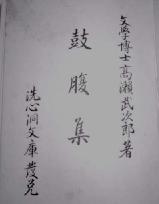 文學博士高瀬武次郎著
鼓腹集
洗心洞文庫發兌